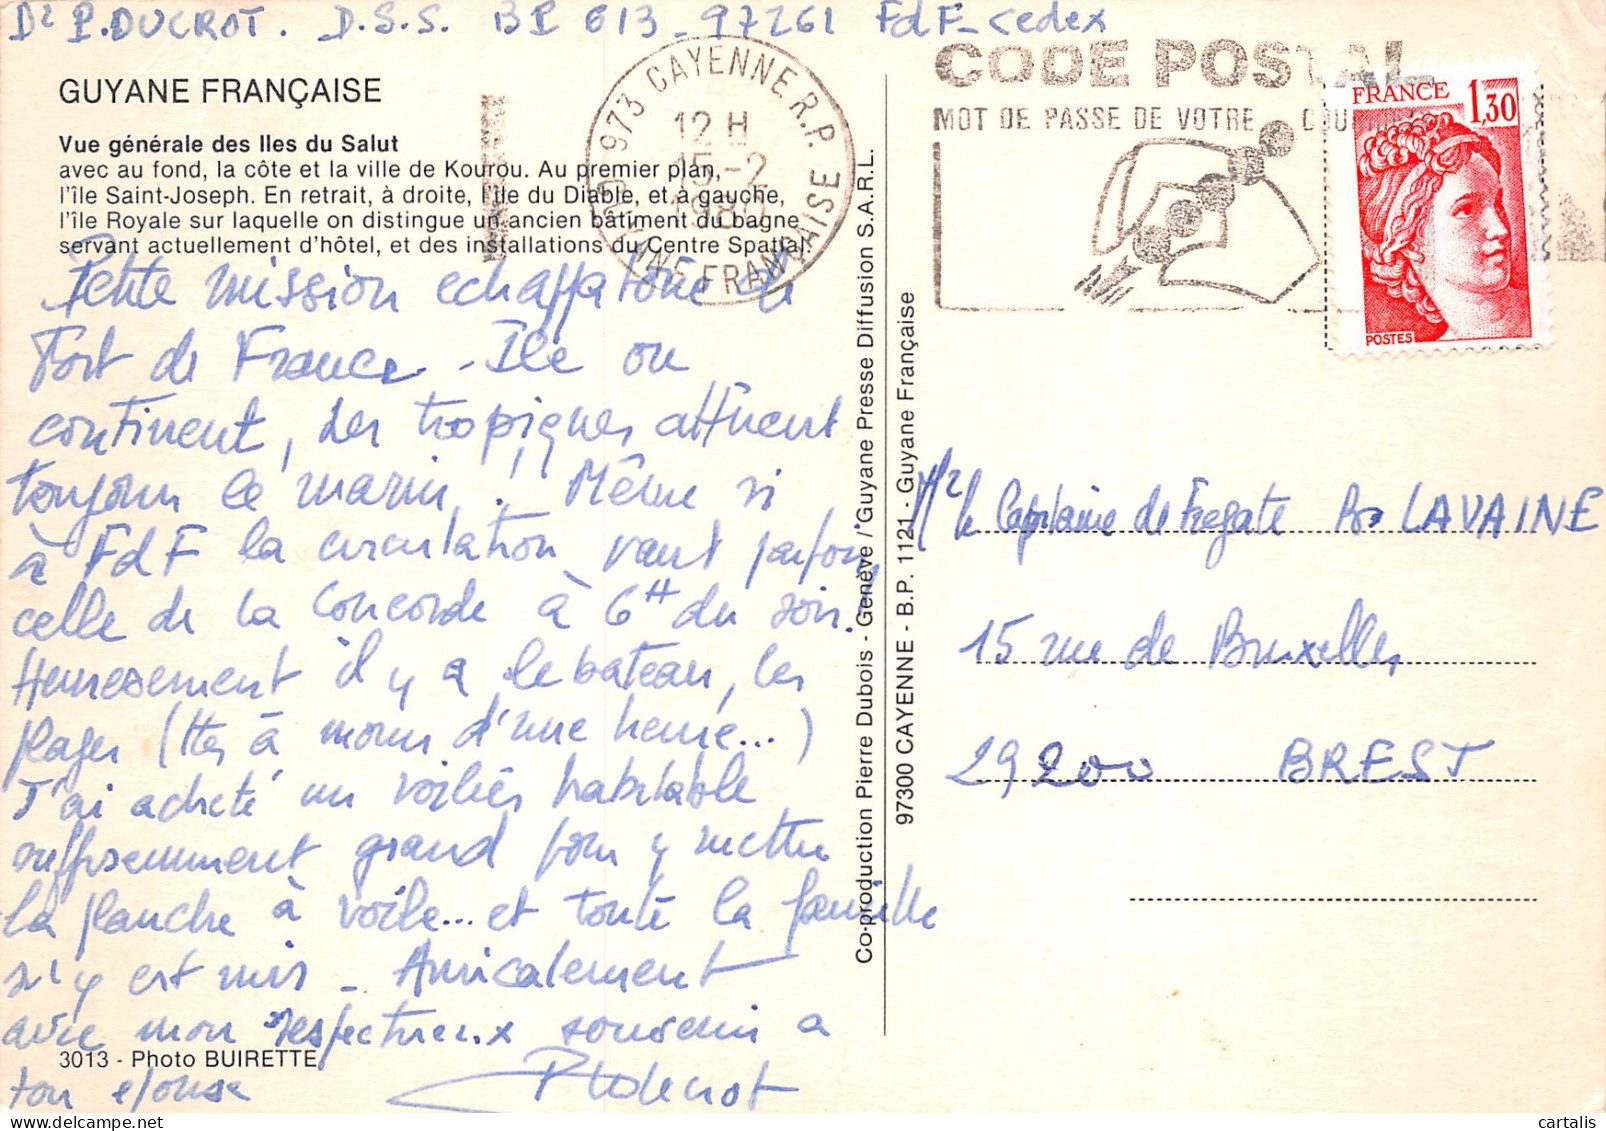 Dr P. DUCROT. D.S.S. BP 613 - 97261 FdF - Cedex
GUYANE FRANÇAISE
Vue générale des Iles du Salut
avec au fond, la côte et la ville de Kourou. Au premier plan,
l'île Saint-Joseph. En retrait, à droite, l'île du Diable, et à gauche,
l'île Royale sur laquelle on distingue un ancien bâtiment du bagne
servant actuellement d'hôtel, et des installations du Centre Spatial.
Petite mission echappatoire de
Fort de France - Ile ou
continent, les tropiques attirent
toujours le marin ! Même si
à FdF la circulation vaut parfois
celle de la Concorde à 6H du soir.
Heureusement il y a le bateau, les
plages (ttes à moins d'une heure...)
J'ai acheté un voilier habitable
suffisemment grand pour y mettre
la planche à voile... et toute la famille
s'y est mis - Amicalement
avec mon respectueux souvenir a
ton epouse
PDucrot
3013 - Photo BUIRETTE
Co-production Pierre Dubois - Genève / Guyane Presse Diffusion S.A.R.L.
97300 CAYENNE - B.P. 1121 - Guyane Française
973 CAYENNE R.P.
12 H
15-2
1980
GUYANE FRANÇAISE
CODE POSTAL
MOT DE PASSE DE VOTRE COU
FRANCE 1,30
POSTES
Mr le Capitaine de Fregate LAVAINE
15 rue de Bruxelles
29200 BREST
cartalis